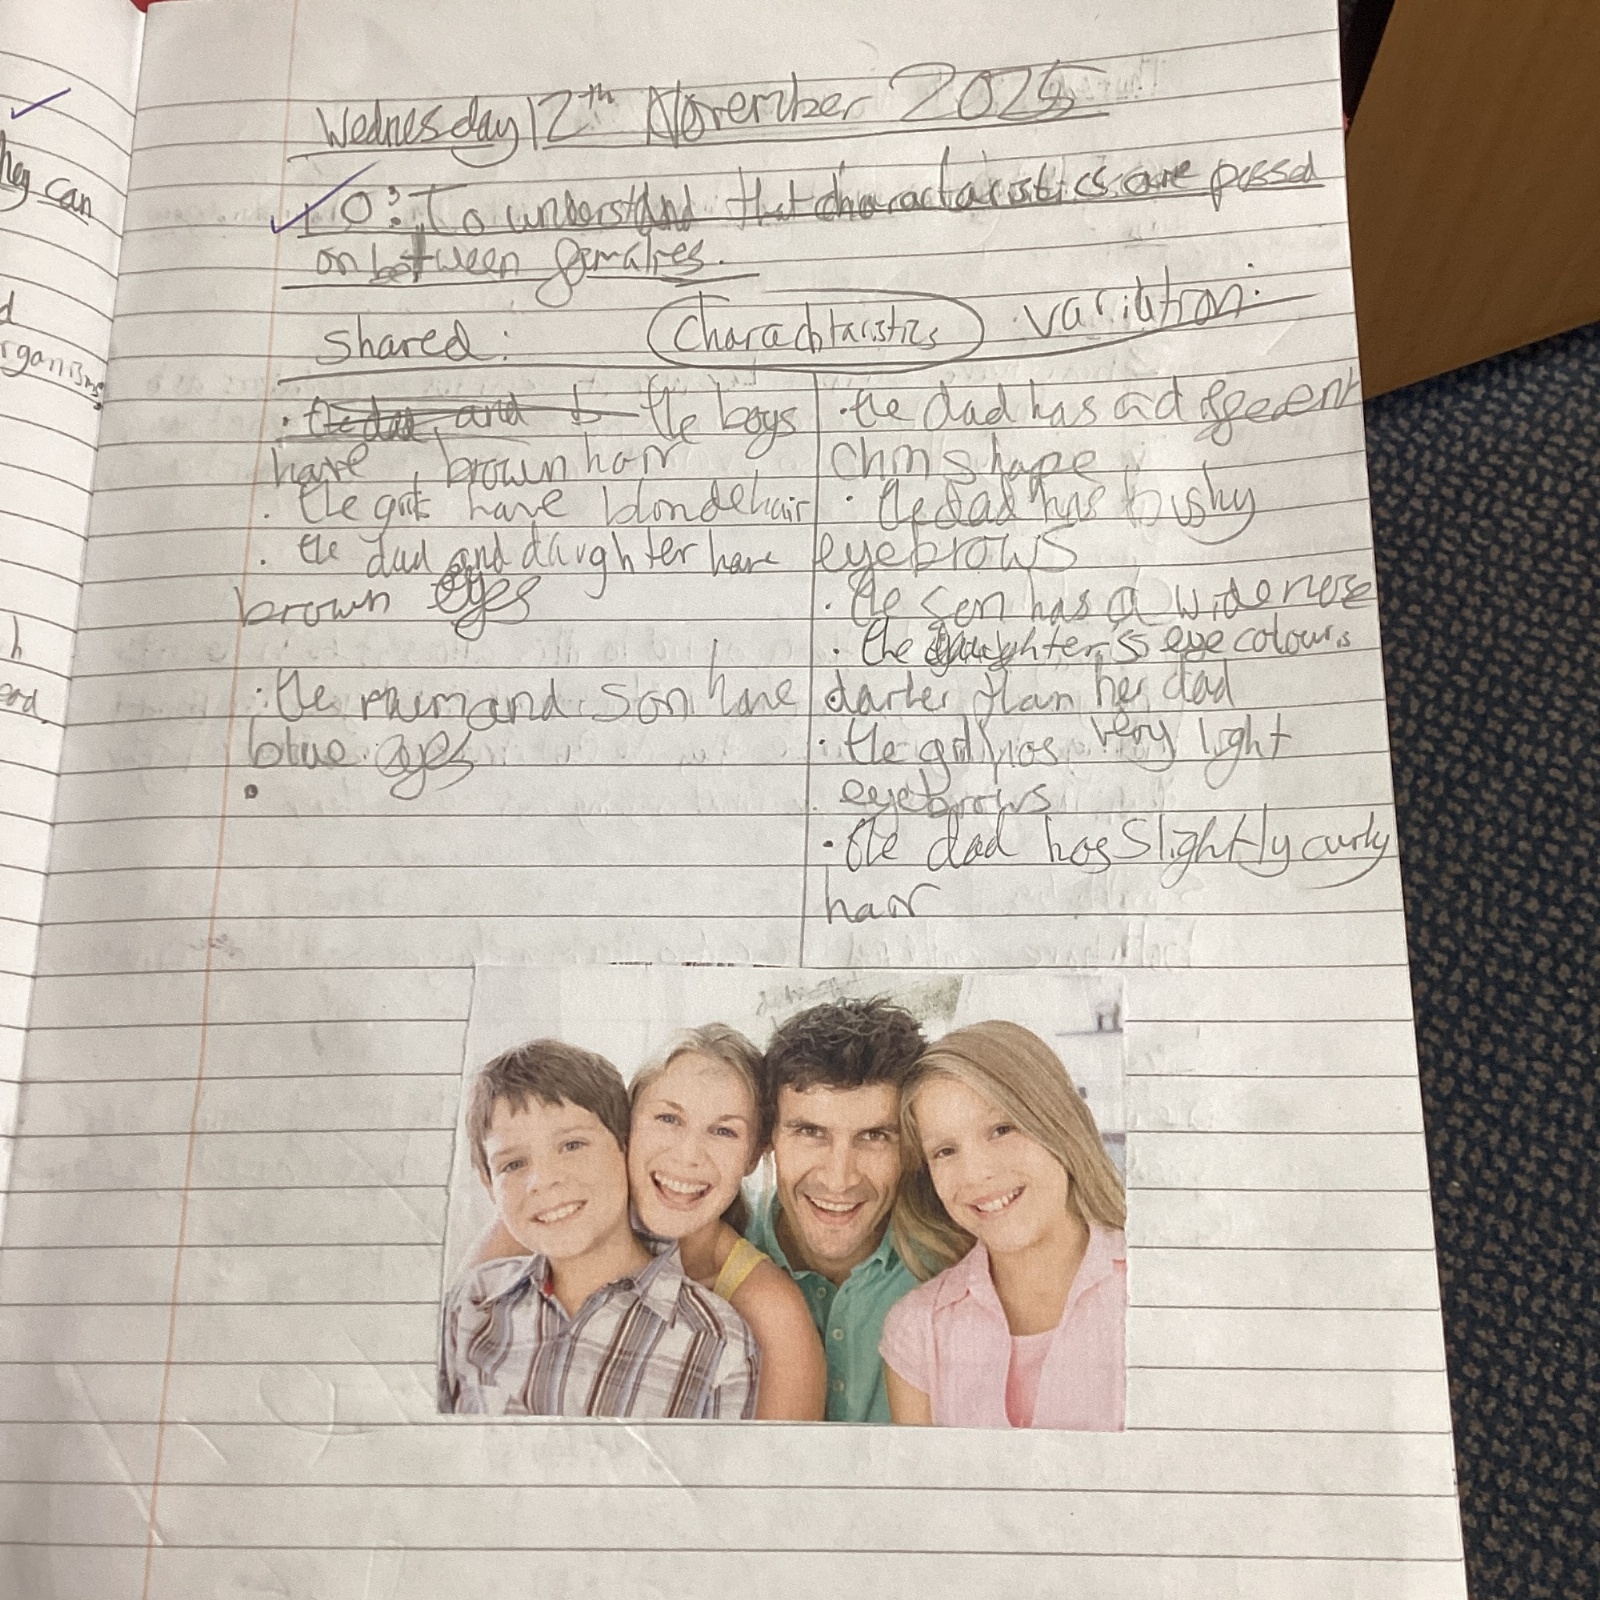 hey can
d
rganisms.
h
ead.
Wednesday 12th November 2025
LO: To understand that charactaristics are passed
on between familes.
Shared: Charachtaristics variation:
· the dad and b the boys
have brown hair
· the girls have blonde hair
· the dad and daughter have
brown eyes
· the mum and son have
blue eyes
·
· the dad has a different
chin shape
· the dad has bushy
eyebrows
· the son has a wide nose
· the daughter's eye colour is
darker than her dad
· the girl has very light
eyebrows
· the dad has slightly curly
hair